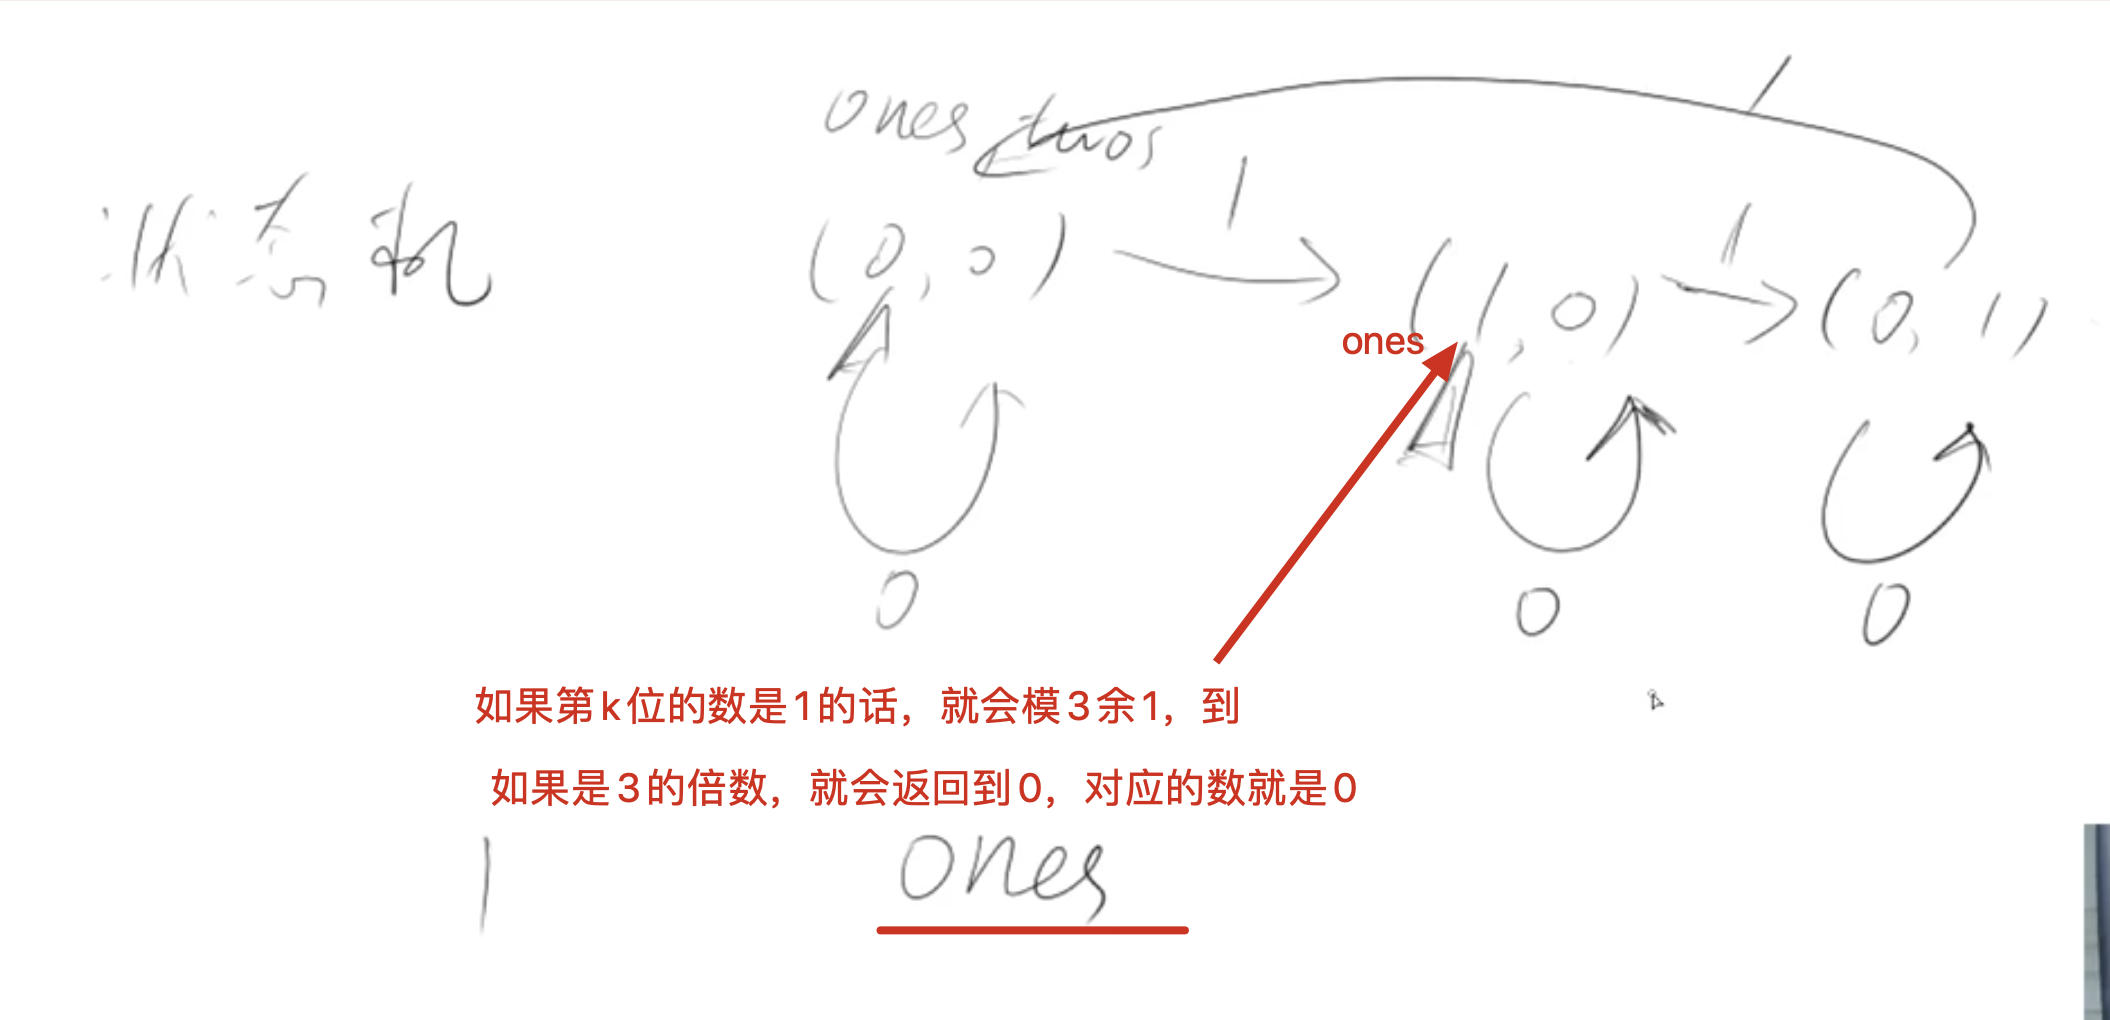 ones twos
1
1
1
状态机
(0,0)
(1,0)
(0,1)
ones
0
0
0
如果第k位的数是1的话，就会模3余1，到
如果是3的倍数，就会返回到0，对应的数就是0
1 ones